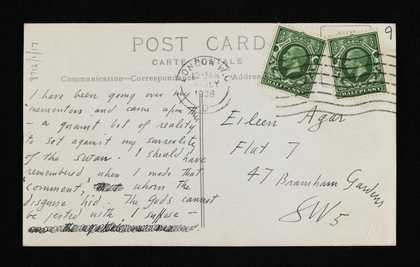 9712/1/17
9
POST CARD
CARTE POSTALE
Communication—Correspondence
Address
LONDON W.C.
12-
JLY
1938
HALFPENNY
HALFPENNY
I have been going over my
mementoes and came upon this
– a quaint bit of reality
to set against my surrealité
of the swan. I should have
remembered when I made that
comment, whom the
disguise hid. The Gods cannot
be jested with, I suffuse –
Eileen Agar
Flat 7
47 Bramham Gardens
SW5